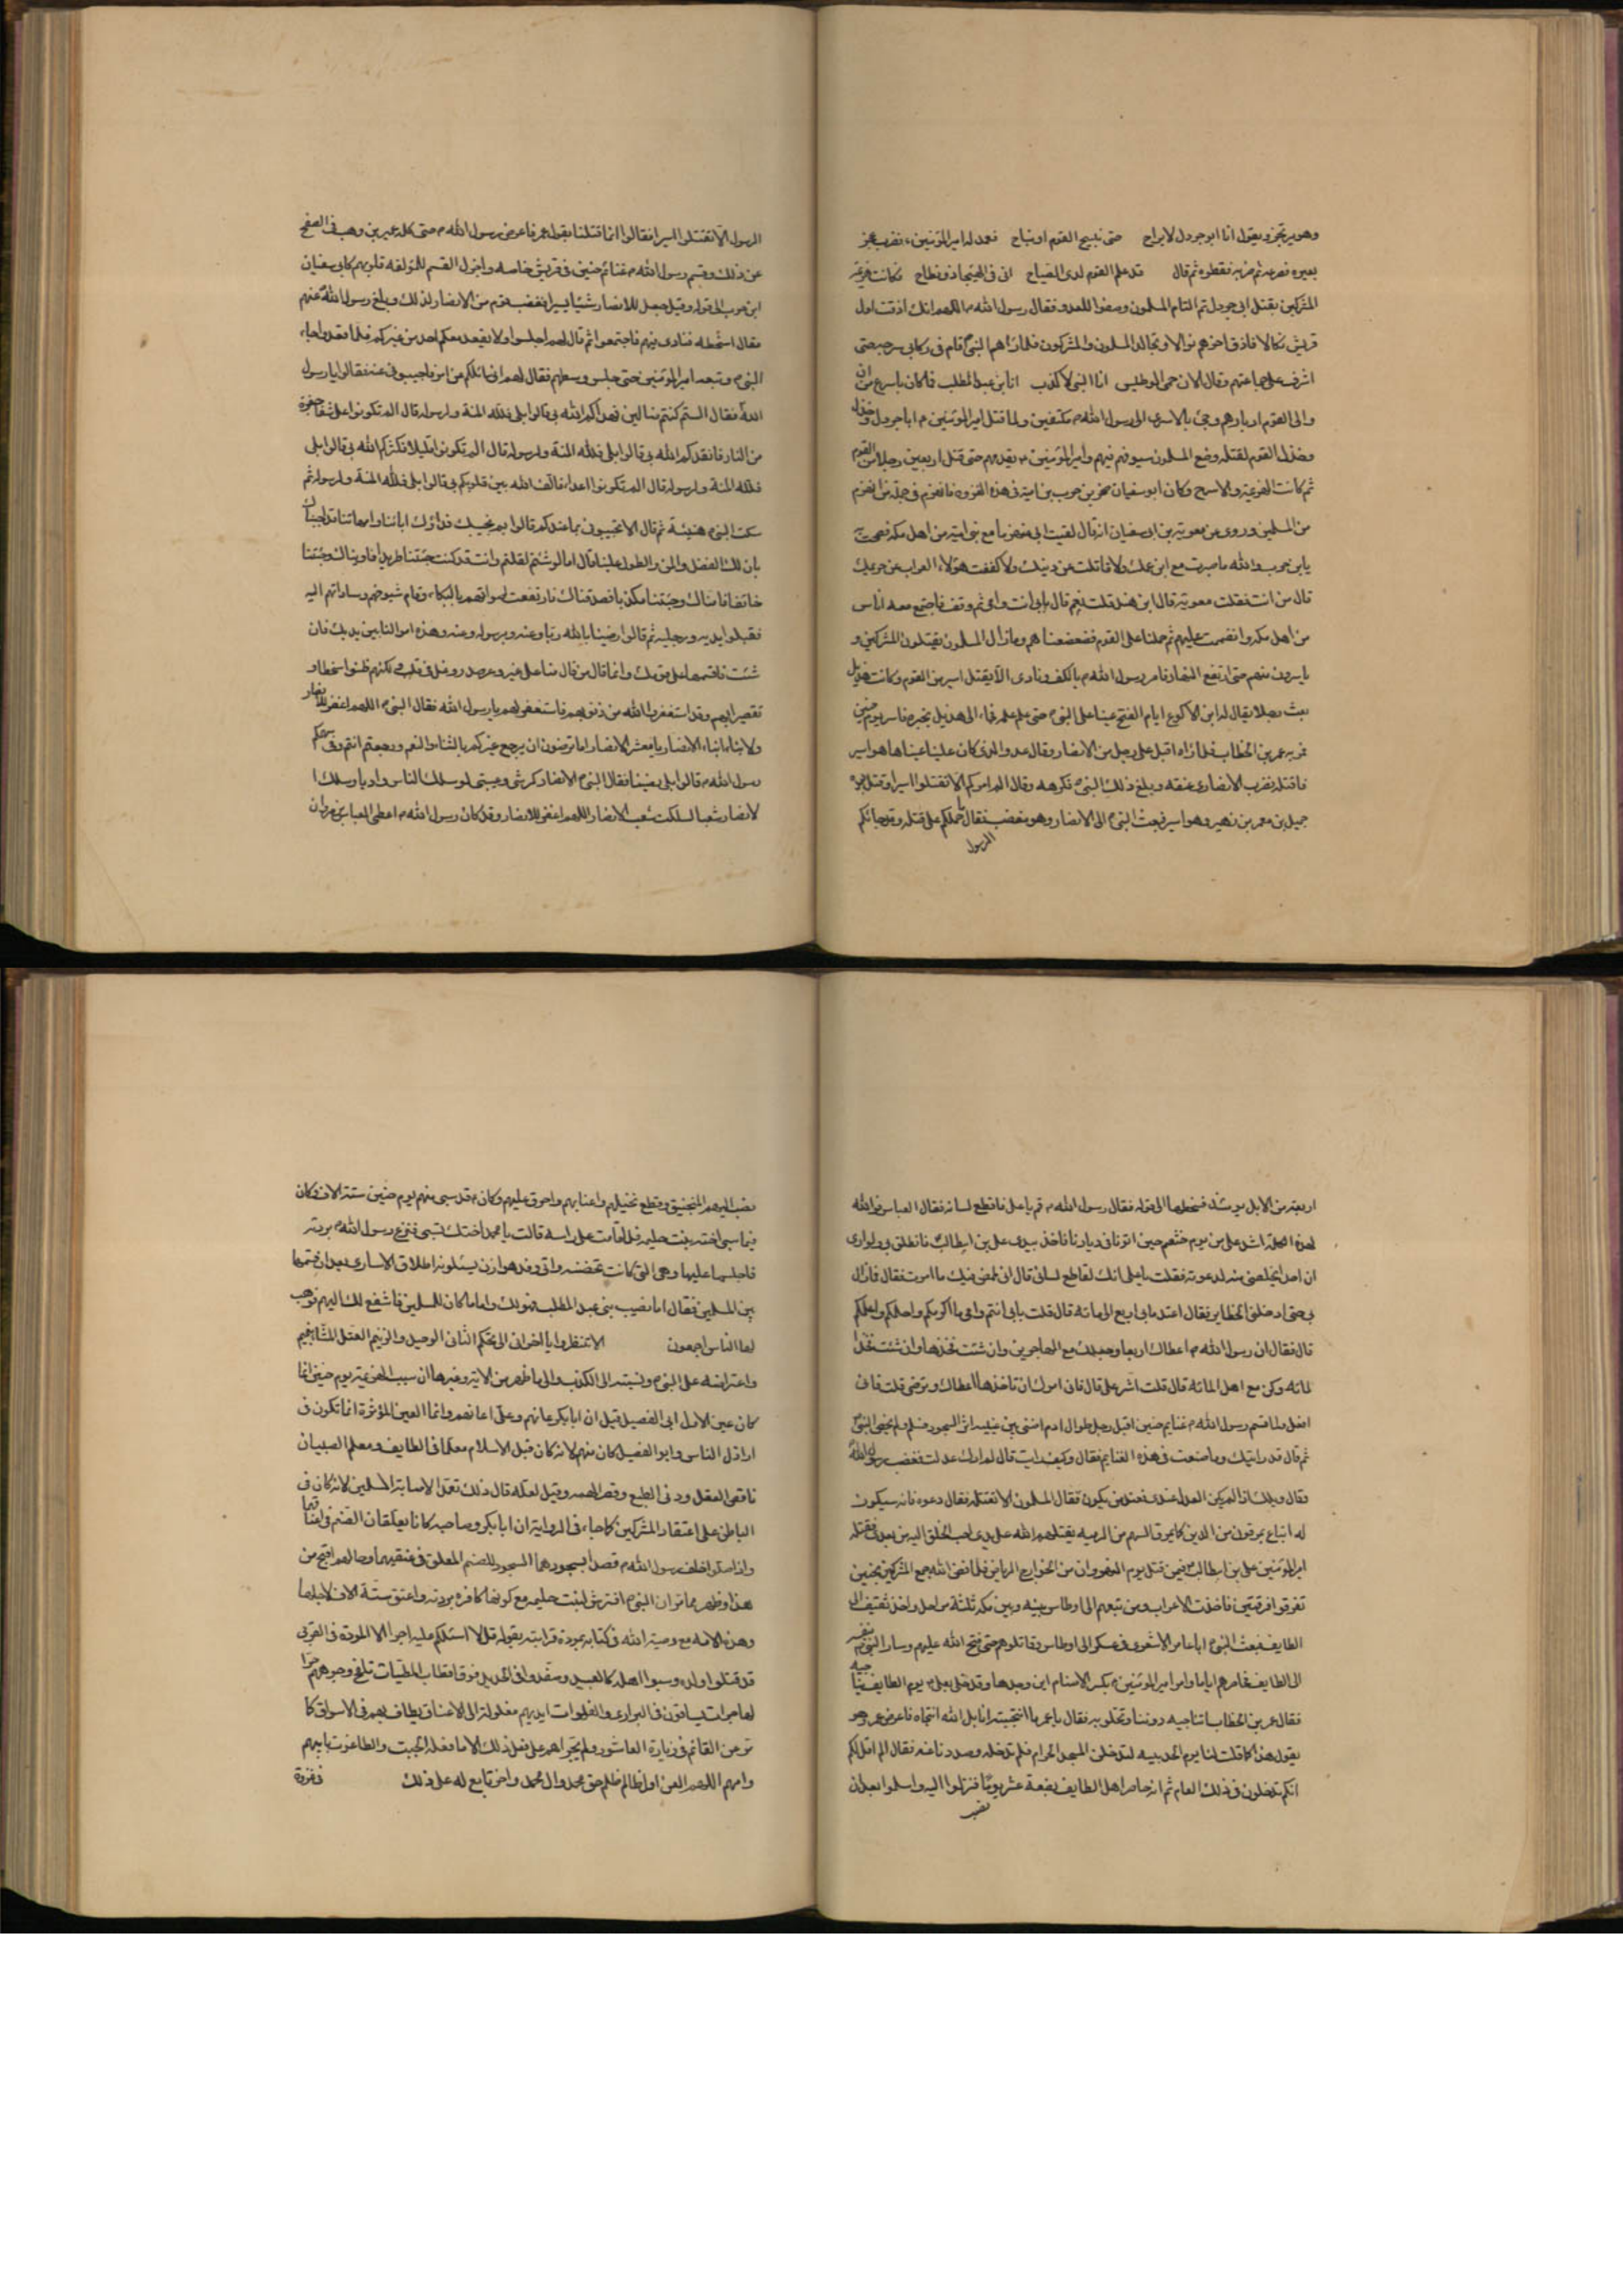 وهو يرتجز ويقول انا ابو جرول لا براح حتى نبيح القوم او نباح فصمد له امير المؤمنين ع فضرب عجز
بعيره فصرعه ثم ضربه فقطره ثم قال قد علم القوم لدى الصباح انى فى الهيجاء ذو نطاح فكانت هزيمة
المشركين بقتل ابى جرول ثم التام المسلمون وصفوا للعدو فقال رسول الله ص اللهم انك اذقت اول
قريش نكالا فاذق اخرهم نوالا وتجالد المسلمون والمشركون فلما راهم النبى ص قام فى ركابى سرجه حتى
اشرف على جماعتهم وقال الان حمى الوطيس انا النبى لا كذب انا ابن عبد المطلب فما كان باسرع من ان
ولى القوم ادبارهم وجئ بالاسرى الى رسول الله ص مكتفين ولما قتل امير المؤمنين ع ابا جرول وخذل
القوم لقتله وضع المسلمون سيوفهم فيهم وامير المؤمنين ع يقدمهم حتى قتل اربعين رجلا من القوم
ثم كانت الهزيمة والاسر ح وكان ابو سفيان صخر بن حرب بن امية فى هذه الغزوه فانهزم فى جملة من انهزم
من المسلمين وروى عن معوية بن ابى سفيان انه قال لقيت ابى منهزما مع بنى امية من اهل مكه فصحت به
يابن حرب والله ما صبرت مع ابن عمك ولا قاتلت عن دينك ولا كففت هؤلاء الاعراب عن حريمك
قال من انت فقلت معوية قال ابن هند قلت نعم قال بابى انت وامى ثم وقف فاجتمع معه اناس
من اهل مكه وانضممت عليهم ثم حملنا على القوم فضعضعناهم ومازال المسلمون يقتلون المشركين و
ياسرون منهم حتى ارتفع النهار فامر رسول الله ص بالكف ونادى الا يقتل اسير من القوم وكانت هذيل
بعثت رجلا يقال له ابن الاكوع ايام الفتح عينا على النبى ص حتى علم علمه فجاء الى هذيل بخبره فاسر يوم حنين
فمر به عمر بن الخطاب فلما راه اقبل على رجل من الانصار وقال عدو الله الذى كان علينا عينا ها هو اسير
فاقتله فضرب الانصارى عنقه وبلغ ذلك النبى ص فكرهه وقال الم امركم الا تقتلوا اسيرا وقتل بعده
جميل بن معمر بن زهير وهو اسير فبعث النبى ص الى الانصار وهو مغضب فقال ما حملكم على قتله وقد جائكم
الرسول
الرسول الا تقتلوا اسيرا فقالوا انما قتلنا بقول عمر فاعرض رسول الله ص حتى كلمه عمير بن وهب فى الصفح
عن ذلك وقسم رسول الله ص غنائم حنين فى قريش خاصه واجزل القسم للمؤلفه قلوبهم كابى سفيان
ابن حرب الى قوله وقيل جعل للانصار شيئا يسيرا فغضب قوم من الانصار لذلك وبلغ رسول الله ص عنهم
مقال اسخطه فنادى فيهم فاجتمعوا ثم قال لهم اجلسوا ولا يقعد معكم احد من غيركم فلما قعدوا جاء
النبى ص وتبعه امير المؤمنين حتى جلس وسطهم فقال لهم انى سائلكم عن امر فاجيبونى عنه فقالوا يا رسول
الله فقال الستم كنتم ضالين فهداكم الله بى قالوا بلى فلله المنة ولرسوله قال الم تكونوا على شفا حفرة
من النار فانقذكم الله بى قالوا بلى فلله المنة ولرسوله قال الم تكونوا قليلا فكثركم الله بى قالوا بلى
فلله المنة ولرسوله قال الم تكونوا اعداء فالف الله بين قلوبكم بى قالوا بلى فلله المنة ولرسوله ثم
سكت النبى ص هنيئة ثم قال الا تجيبونى بما عندكم قالوا بم نجيبك فداؤك ابائنا وامهاتنا قد اجبناك
بان لك الفضل والمن والطول علينا قال اما لو شئتم لقلتم وانت قد كنت جئتنا طريدا فاويناك وجئتنا
خائفا فامناك وجئتنا مكذبا فصدقناك فارتفعت اصواتهم بالبكاء وقام شيوخهم وساداتهم اليه
فقبلوا يديه ورجليه ثم قالوا رضينا بالله ربا وعنه وبرسوله وعنه وهذه اموالنا بين يديك فان
شئت فاقسمها على قومك وانما قال من قال منا على غير وغر صدر وغل فى قلب ولكنهم ظنوا سخطا و
تقصيرا بهم وقد استغفروا الله من ذنوبهم فاستغفر لهم يا رسول الله فقال النبى ص اللهم اغفر للانصار
ولابناء ابناء الانصار يا معشر الانصار اما ترضون ان يرجع غيركم بالشاء والنعم ورجعتم انتم وفى سهمكم
رسول الله ص قالوا بلى رضينا فقال النبى ص الانصار كرشى وعيبتى لو سلك الناس واديا وسلك ا
لانصار شعبا لسلكت شعب الانصار اللهم اغفر للانصار وقد كان رسول الله ص اعطى العباس بن مرداس
اربعة من الابل يومئذ فسخطها الى قوله فقال رسول الله ص قم يا على فاقطع لسانه فقال العباس فوالله
لهذه الكلمة اشد على من يوم خثعم حين اتونا فى ديارنا فاخذ بيدى على بن ابيطالب فانطلق بى ولو ارى
ان احدا يخلصنى منه لدعوته فقلت يا على انك لقاطع لسانى قال انى لممض فيك ما امرت فقال فما زال
بى حتى ادخلنى الحظاير فقال اعتد ما بى اربع الى مائه قال قلت بابى انتم وامى ما اكرمكم واحلمكم واعلمكم
قال فقال ان رسول الله ص اعطاك اربعا وجعلك مع المهاجرين وان شئت فخذها وان شئت فخذ ا
لمائه وكن مع اهل المائة قال قلت اشر على قال فانى امرك ان تاخذ ما اعطاك وترضى قلت فانى
افعل ولما قسم رسول الله ص غنايم حنين اقبل رجل طوال ادم احنى بين عينيه اثر السجود فسلم ولم يخص النبى ص
ثم قال قد رايتك وما صنعت فى هذه الغنايم فقال وكيف رايت قال لم ارك عدلت فغضب رسول الله
وقال ويلك اذا لم يكن العدل عندى فعند من يكون فقال المسلمون الا نقتله فقال دعوه فانه سيكون
له اتباع يمرقون من الدين كما يمرق السهم من الرميه يقتلهم الله على يدى احب الخلق اليه من بعدى فقتله
امير المؤمنين على بن ابيطالب ع فيمن قتل يوم النهروان من الخوارج فلما فض الله جمع المشركين بحنين
تفرقوا فرقتين فاخذت الاعراب ومن تبعهم الى اوطاس وبينه وبين مكه ثلثة مراحل واخذ ثقيف الى
الطايف فبعث النبى ص ابا عامر الاشعرى فى عسكر الى اوطاس وقاتلوهم حتى فتح الله عليهم وسار النبى ص بنفسه
الى الطايف فحاصرهم اياما وامر امير المؤمنين ع بكسر الاصنام اين وجدها وقد خلى بعلى ع يوم الطايف يناجيه
فقال عمر بن الخطاب اتناجيه دوننا وتخلو به فقال يا عمر ما انا انتجيته بل الله انتجاه فاعرض عمر وهو
يقول هذا كما قلت لنا يوم الحديبيه لتدخلن المسجد الحرام فلم ندخله وصددنا عنه فقال ص لم اقل لكم
انكم تدخلون فى ذلك العام ثم انه حاصر اهل الطايف بضعة عشر يوما فنزلوا اليه واسلموا بعد ان
نصب
نصب اليهم المنجنيق وقطع نخيلهم واعنابهم واحرق عليهم وكان ص قد سبى منهم يوم حنين ستة الاف وكان
فيما سبى اخته بنت حليمه فلما قامت على راسه قالت يا محمد اختك تسبى فنزع رسول الله ص بردته
فاجلسها عليها وهى التى كانت تحضنه واتى وفد هوازن يسئلونه اطلاق الاسارى بعد ان قسمها
بين المسلمين فقال اما نصيب بنى عبد المطلب فهو لك واما ما كان للمسلمين فاشفع لك اليهم فوهب
لها الناس اجمعون الا تنظروا يا اخوانى الى تحكم الثانى
واعتراضه على النبى ص ونسبته الى الكذب والى ما ظهر من الاية وغيرها ان سبب الهزيمة يوم حنين انما
كان عين الاول ابى الفصيل قيل ان ابابكر عانهم وعلى اعانهم وانما العين المؤثرة انما تكون فى
اراذل الناس وابو الفصيل كان منهم لانه كان قبل الاسلام معلما فى الطايف ومعلم الصبيان
ناقص العقل ودنى الطبع وقصر الهمه وقيل لعله قال ذلك تعمدا لاصابة المسلمين لانه كان فى
الباطن على اعتقاد المشركين كما جاء فى الرواية ان ابابكر وصاحبه كانا يعلقان الصنم فى اعناقهما
واذا صلوا خلف رسول الله ص قصدا بسجودهما السجود للصنم المعلق فى عنقيهما وحالهم اقبح من
هذا وظهر مما مر ان النبى ص افترش لبنت حليمه مع كونها كافره بردته واعتق ستة الاف لاجلها
وهذه الامه مع وصية الله فى كتابه بمودة قرابته بقوله قل لا اسئلكم عليه اجرا الا المودة فى القربى
قد قتلوا اولاده وسبوا اهله كالعبيد وصفدوا فى الحديد فوق اقتاب المطيات تلفح وجوههم حر ا
لهاجرات يساقون فى البرارى والفلوات ايديهم مغلولة الى الاعناق يطاف بهم فى الاسواق كما
عن القائم فى زيارة العاشور ولم يجراهم على فعل ذلك الا ما فعله الجبت والطاغوت بابيهم
وامهم اللهم العن اول ظالم ظلم حق محمد وال محمد واخر تابع له على ذلك